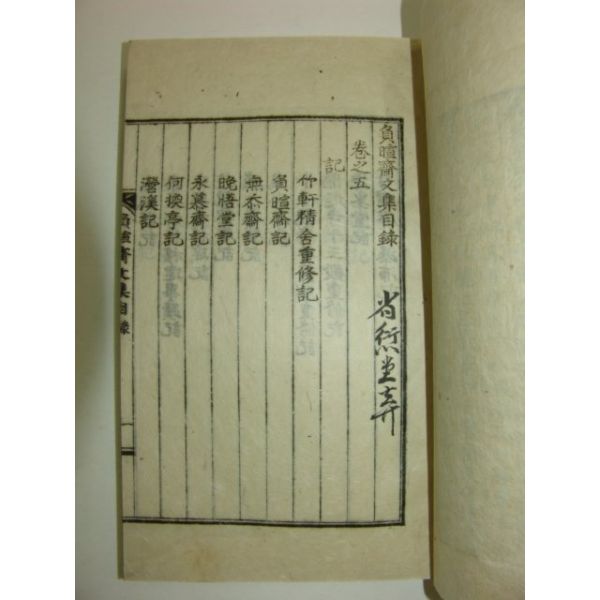 負暄齋文集目錄
卷之五
記
竹軒精舍重修記
負暄齋記
無忝齋記
晚悟堂記
永慕齋記
何換亭記
澄溪記
負暄齋文集目錄
一